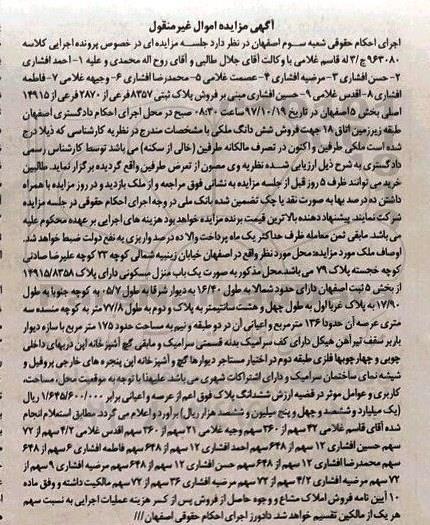 آگهی مزایده اموال غیر منقول
اجرای احکام حقوقی شعبه سوم اصفهان در نظر دارد جلسه مزایده ای در خصوص پرونده اجرایی کلاسه
۹۶۳۰۸۰ج/۳ له قاسم غلامی با وکالت آقای جلال طالبی و آقای روح اله محمدی و علیه ۱- احمد افشاری
۲- حسن افشاری ۳- مرضیه افشاری ۴- عصمت غلامی ۵- محمدرضا افشاری ۶- وجیهه غلامی ۷- فاطمه
افشاری ۸- اقدس غلامی ۹- حسین افشاری مبنی بر فروش پلاک ثبتی ۸۳۵۷ فرعی از ۲۸۷۰ فرعی از ۱۴۹۱۵
اصلی بخش ۵ اصفهان در تاریخ ۹۷/۱۰/۱۹ ساعت ۰۸:۳۰ صبح در محل اجرای احکام دادگستری اصفهان
طبقه زیرزمین اتاق ۱۸ جهت فروش شش دانگ ملکی با مشخصات مندرج در نظریه کارشناسی که ذیلا درج
شده است ملکی طرفین و اکنون در تصرف مالکانه طرفین (خالی از سکنه) می باشد توسط کارشناس رسمی
دادگستری به شرح ذیل ارزیابی شده نظریه وی مصون از تعرض طرفین واقع گردیده برگزار نماید. طالبین
خرید می توانند ظرف ۵ روز قبل از جلسه مزایده به نشانی فوق مراجعه و از ملک بازدید و در روز مزایده با همراه
داشتن ده درصد بها به صورت نقد یا چک تضمین شده بانک ملی در وجه اجرای احکام حقوقی در جلسه مزایده
شرکت نمایند. پیشنهاد دهنده بالاترین قیمت برنده مزایده خواهد بود هزینه های اجرایی بر عهده محکوم علیه
می باشد. مابقی ثمن معامله ظرف حداکثر یک ماه پرداخت والا ده درصد واریزی به نفع دولت ضبط خواهد شد.
اوصاف ملک مورد مزایده: محل مورد نظر واقع در اصفهان خیابان زینبیه شمالی کوچه ۲۳ کوچه علیرضا صادنی
کوچه خجسته پلاک ۷۹ می باشد. محل مذکور به صورت یک باب منزل مسکونی دارای پلاک ۱۴۹۱۵/۸۳۵۸
از بخش ۵ ثبت اصفهان دارای حدود شمالا به طول ۱۶/۴۰ به دیوار شرقا به طول ۰۵/۷ به کوچه جنوبا به طول
۱۷/۹۰ به پلاک غربا اول به طول چهل و هشت سانتیمتر به پلاک و دوم به طول ۸/۷۷ متر به کوچه منسده سه
متری عرصه آن حدودا ۱۳۶ متر مربع و اعیانی آن در دو طبقه و نیم به مساحت حدود ۱۷۵ متر مربع با سازه دیوار
باربر سقف تیر آهن هیکل دارای کف سرامیک بدنه قسمتی سرامیک و مابقی گچ آشپزخانه اپن دربهای داخلی
چوبی و چهارچوبها فلزی طبقه دوم در اختیار مستاجر دیوارها گچ و آشپزخانه اپن پنجره های خارجی پروفیل و
شیشه نمای ساختمان سرامیک و دارای اشتراکات شهری می باشد. علیهذا با توجه به موقعیت محل، مساحت،
کاربری و عوامل موثر در قضیه ارزش ششدانگ پلاک فوق اعم از عرصه و اعیانی برابر ۱/۶۴۵/۶۰۰/۰۰۰ ریال
(یک میلیارد و ششصد و چهل و پنج میلیون و ششصد هزار ریال) برآورد و اعلام می گردد. مطابق استعلام انجام
شده آقای قاسم غلامی ۴۲ سهم از ۳۶۰ سهم وجیه غلامی ۲۱ سهم از ۳۶۰ سهم اقدس غلامی ۴/۲ سهم از ۷۲
سهم حسین افشاری ۱۲ سهم از ۶۴۸ سهم احمد افشاری ۱۲ سهم از ۶۴۸ سهم فاطمه افشاری ۶ سهم از ۶۴۸
سهم محمدرضا افشاری ۱۲ سهم از ۶۴۸ سهم حسن افشاری ۱۲ سهم از ۶۴۸ سهم مرضیه افشاری ۹ سهم از
۷۲ سهم مرضیه افشاری ۴/۲ سهم از ۷۲ سهم مرضیه افشاری ۳۶ سهم از ۷۲ سهم مالکیت داشته و وفق ماده
۱۰ آیین نامه فروش املاک مشاع و وجوه حاصل از فروش پس از کسر هزینه عملیات اجرایی به نسبت سهم
هر یک از مالکین تقسیم خواهد شد. دادورز اجرای احکام حقوقی اصفهان///